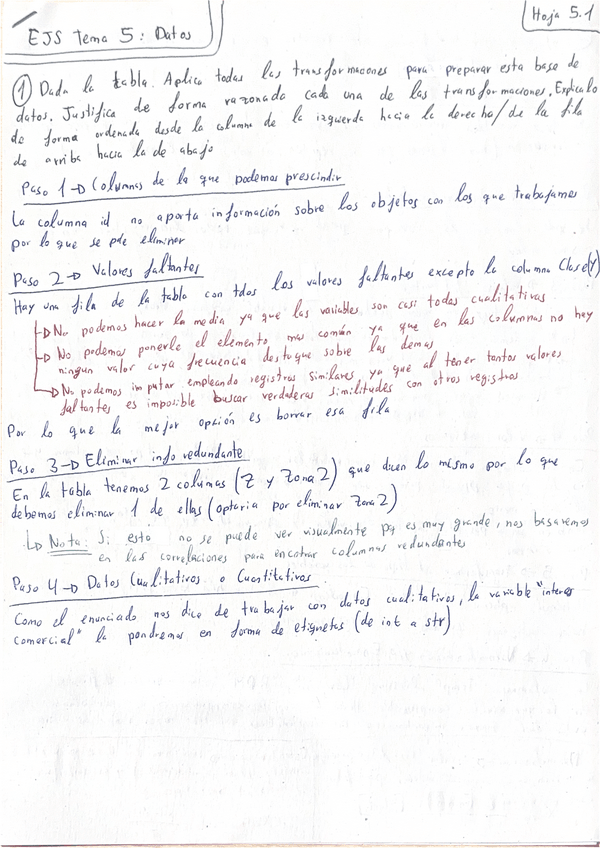 EJS Tema 5: Datos
Hoja 5.1
① Dada la tabla. Aplica todas las transformaciones para preparar esta base de
datos. Justifica de forma razonada cada una de las transformaciones. Explicalo
de forma ordenada desde la columna de la izquierda hacia la derecha/de la fila
de arriba hacia la de abajo
Paso 1 → Columnas de la que podemos prescindir
La columna id no aporta información sobre los objetos con los que trabajamos
por lo que se pde eliminar
Paso 2 → Valores faltantes
Hay una fila de la tabla con tdos los valores faltantes excepto la columna Clase(Y)
→ No podemos hacer la media ya que las variables son casi todas cualitativas
→ No podemos ponerle el elemento mas común ya que en las columnas no hay
ningun valor cuya frecuencia destaque sobre las demas
→ No podemos imputar empleando registros similares, ya que al tener tantos valores
faltantes es imposible buscar verdaderas similitudes con otros registros
Por lo que la mejor opción es borrar esa fila
Paso 3 → Eliminar info redundante
En la tabla tenemos 2 columnas (Z y Zona 2) que dicen lo mismo por lo que
debemos eliminar 1 de ellas (optaria por eliminar Zona 2)
→ Nota: Si esto no se puede ver visualmente pq es muy grande, nos basaremos
en las correlaciones para encotrar columnas redundantes
Paso 4 → Datos Cualitativos o Cuantitativos
Como el enunciado nos dice de trabajar con datos cualitativos, la variable "interes
comercial" la pondremos en forma de etiquetas (de int a str)